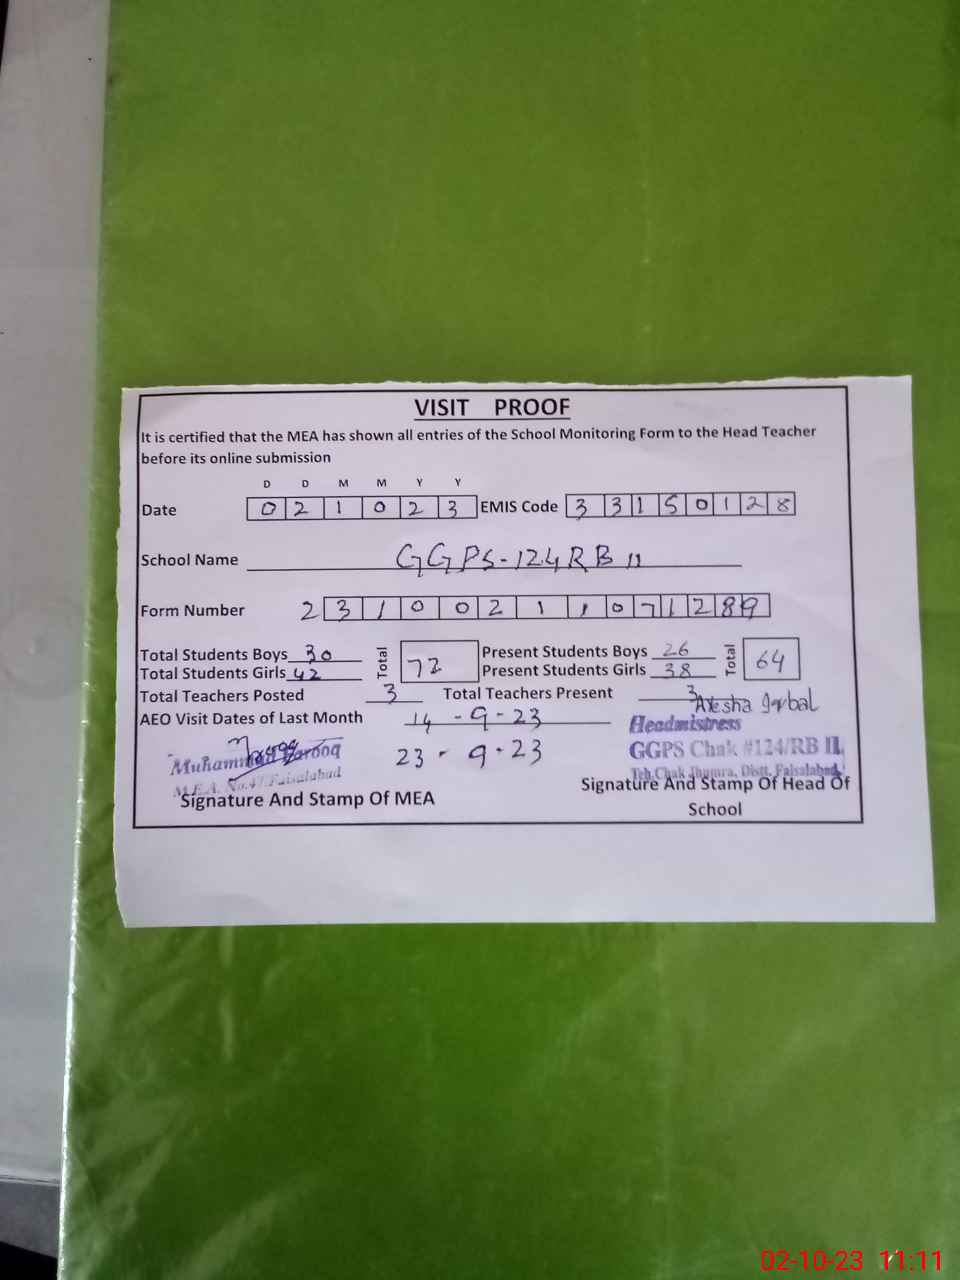 VISIT PROOF
It is certified that the MEA has shown all entries of the School Monitoring Form to the Head Teacher
before its online submission
D D M M Y Y
Date 0 2 1 0 2 3 EMIS Code 3 3 1 5 0 1 2 8
School Name GGPS-124RB II
Form Number 2 3 1 0 0 2 1 1 0 7 1 2 8 9
Total Students Boys 30 Total 72 Present Students Boys 26 Total 64
Total Students Girls 42 Present Students Girls 38
Total Teachers Posted 3 Total Teachers Present 3
AEO Visit Dates of Last Month 14-9-23
23-9-23
Ayesha Iqbal
Muhammad Farooq
M.E.A. No.47 Faisalabad
Signature And Stamp Of MEA
Headmistress
GGPS Chak #124/RB II,
Teh.Chak Jhumra, Distt. Faisalabad.
Signature And Stamp Of Head Of
School
02-10-23 11:11